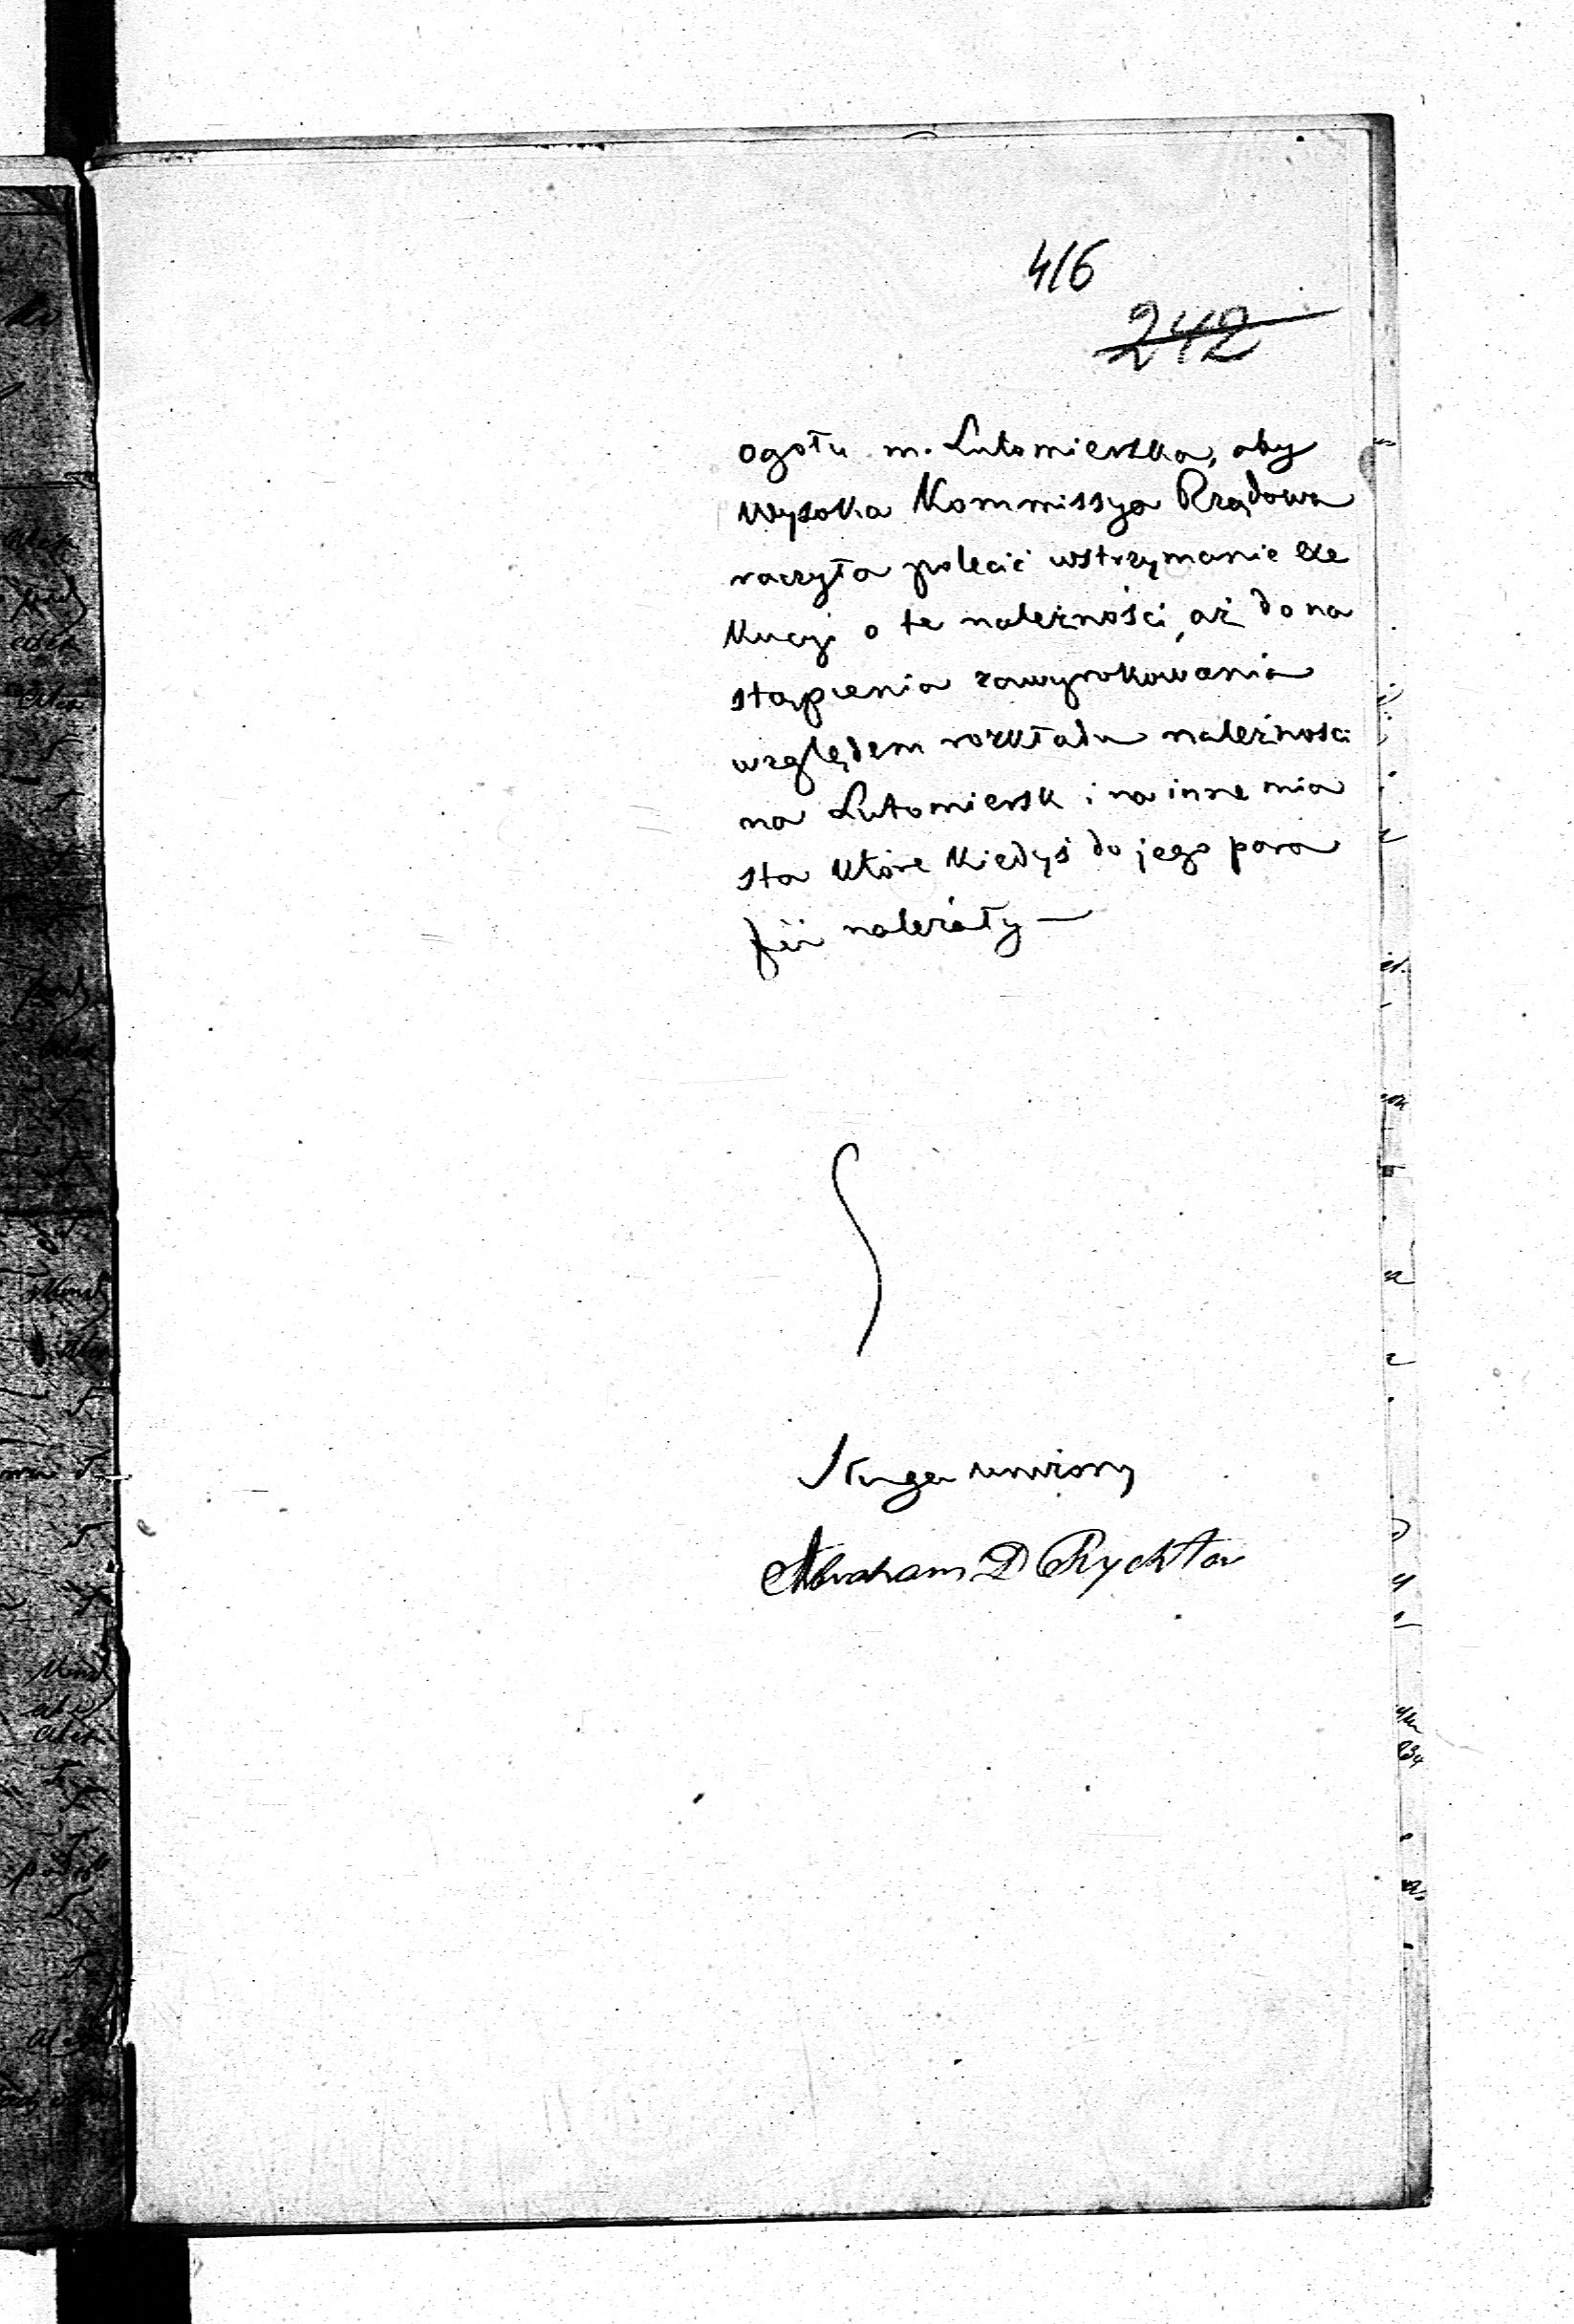 416
242
ogółu m. Lutomierska, aby
Wysoka Kommissya Rządowa
raczyła polecić wstrzymanie exe
kucyi o te należności, aż do na
stąpienia zawyrokowania
względem rozkładu należności
na Lutomiersk i na inne mia
sta które kiedyś do jego para
fii należały —
Sługa uniżony
Abraham D Rychter